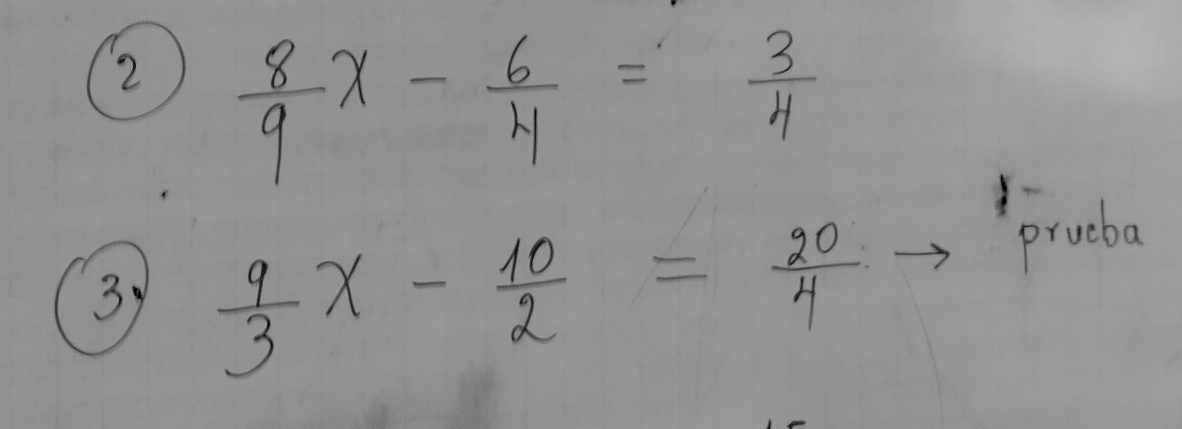 ② 8/9 x - 6/4 = 3/4
③ 9/3 x - 10/2 = 20/4 → prueba